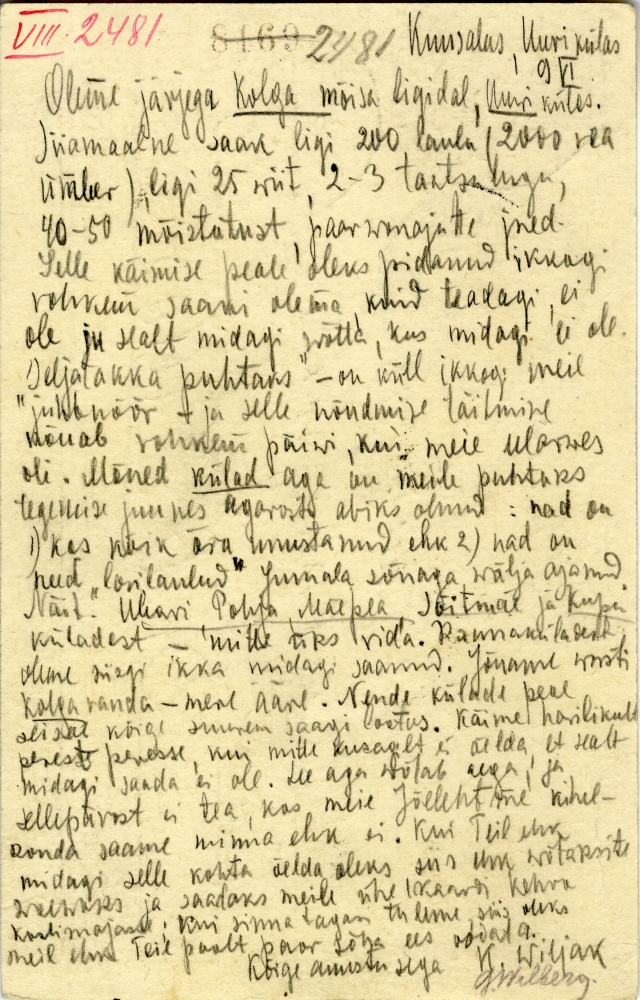 VIII. 2481 8169 2481 Kuusalus, Uuri külas
9 VI
Oleme järjega Kolga mõisa ligidal, Uuri külas.
Siiamaalne saak ligi 200 laulu (2000 rea
ümber), ligi 25 wiit, 2-3 tantsulugu,
40-50 mõistatust, paar wanajutte jned.
Selle käimise peale oleks pidanud ikkagi
rohkem saaki olema, kuid teadagi, ei
ole ju sealt midagi wõtta, kus midagi ei ole.
"Seljatakka puhtaks" - on küll ikkogi meil
"juhtnöör - ja selle nõudmise täitmine
nõuab rohkem päiwi, kui meie
oli. Mõned külad aga on meile puhtaks
tegemise juures agarasti abiks olnud: nad on
1) kas kõik ära unustanud ehk 2) nad on
need "lorilaulud" Jumala sõnaga wälja ajanud.
Näit. Uhari, Pohja, Maepea, Sõitmäe ja Kupu
küladest - mitte üks rida. Rannaküladest
oleme siisgi ikka midagi saanud. Jõuame warsti
Kolga randa - mere ääre. Nende külade peal
seisab kõige suurem saagi lootus. Käime harilikult
perest peresse, kui mitte kusagilt ei öelda, et sealt
midagi saada ei ole. See aga wõtab aega, ja
sellepärast ei tea, kas meie Jõelehtme kihel-
konda saame minna ehk ei. Kui Teil ehk
midagi selle kohta öelda oleks siis ehk wõtaksite
waewaks ja saadaks meile ühe kaardi Kehra
koolimajasse. Kui sinna tagasi tuleme, siis oleks
meil ehk Teie poolt paar sõna ees oodata.
Kõige austusega K. Wiljak
G. Wilberg.